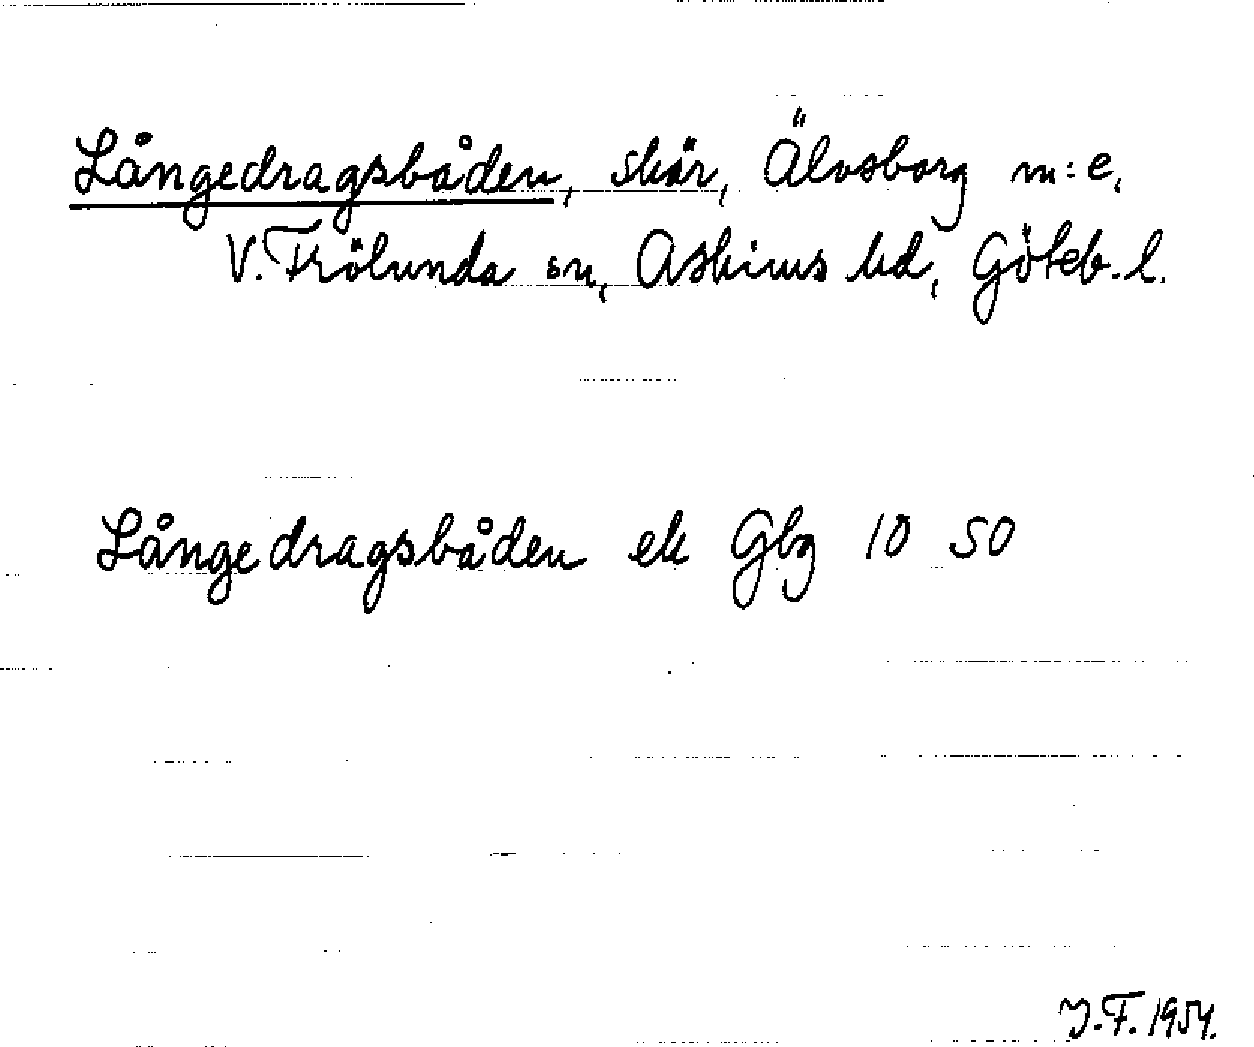 Långedragsbåden, skär, Älvsborg m:e,
V. Frölunda sn, Askims hd, Göteb. l.
Långedragsbåden ek Gbg 10 50
J.F. 1954.